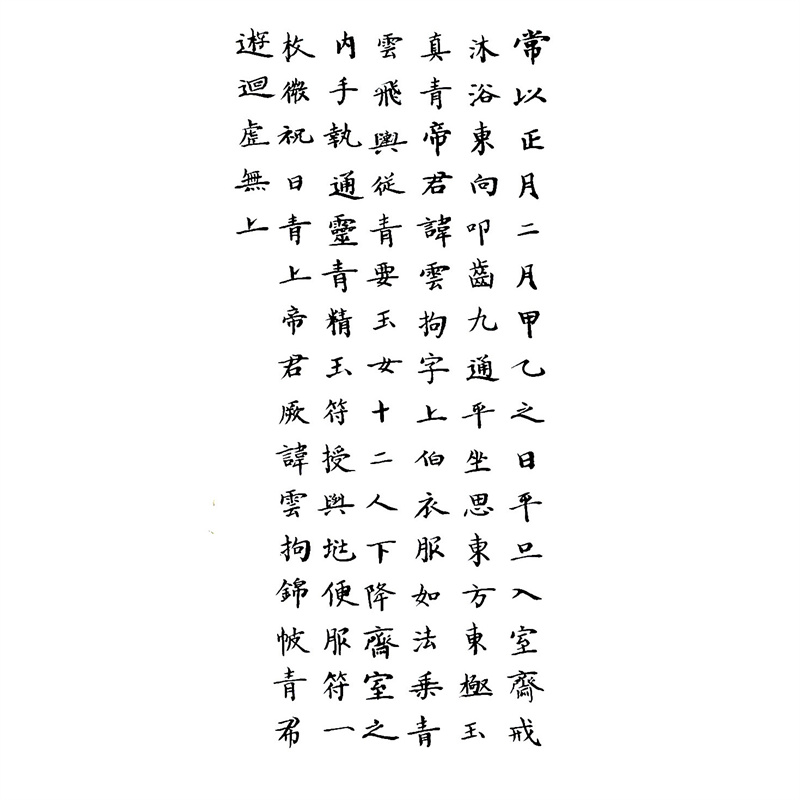 常以正月二月甲乙之日平旦入室齋戒
沐浴東向叩齒九通平坐思東方東極玉
真青帝君諱雲拘字上伯衣服如法乗青
雲飛輿従青要玉女十二人下降齋室之
内手執通靈青精玉符授與兆便服符一
枚微祝曰青上帝君厥諱雲拘錦帔青帬
遊迴虛無上